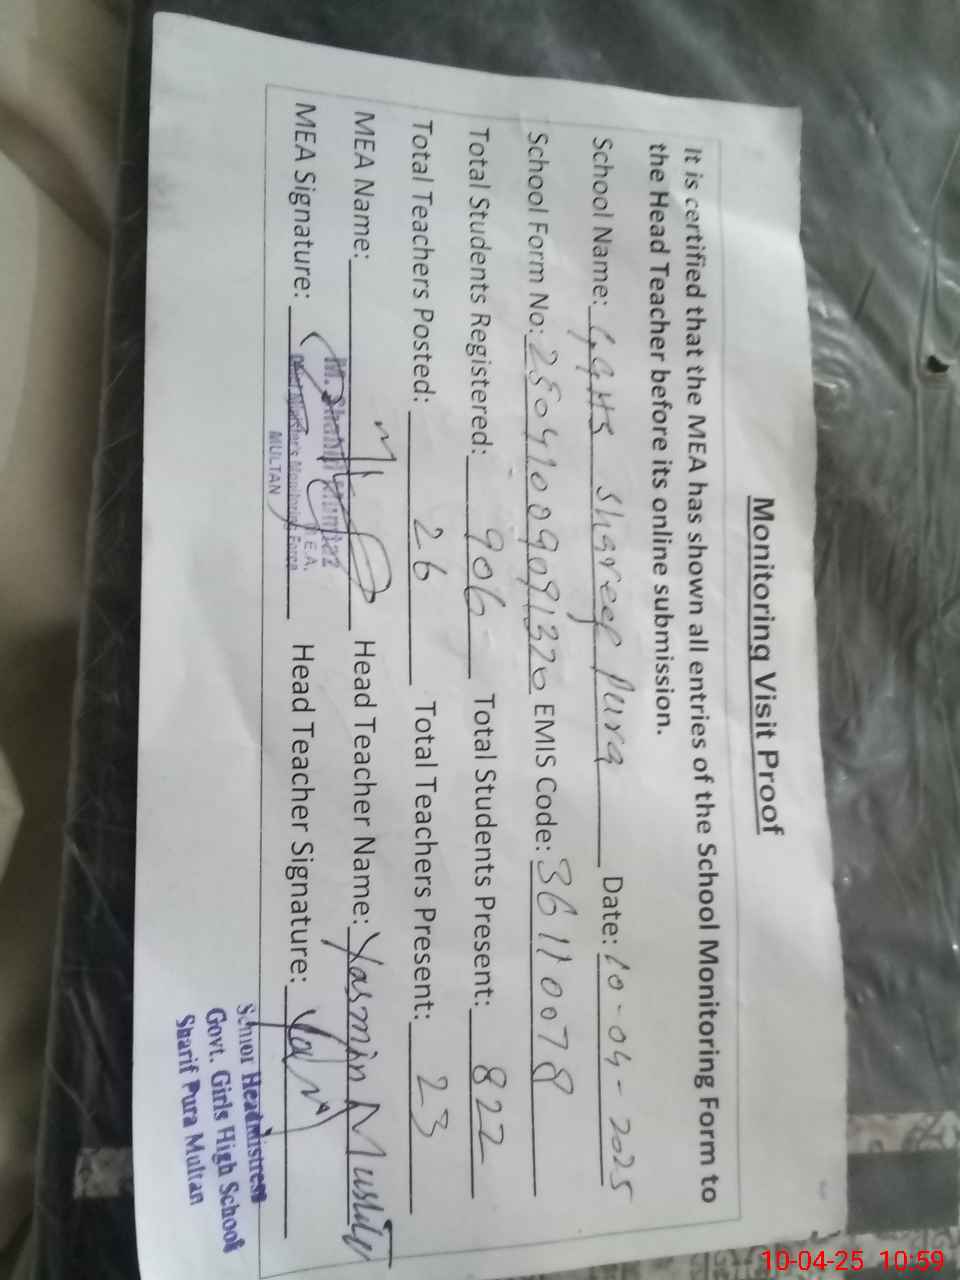 Monitoring Visit Proof
It is certified that the MEA has shown all entries of the School Monitoring Form to
the Head Teacher before its online submission.
School Name: GGHS Shareef Pura Date: 10-04-2025
School Form No: EMIS Code: 36110078
Total Students Registered: 906 Total Students Present: 822
Total Teachers Posted: 26 Total Teachers Present: 23
MEA Name: Head Teacher Name: Yasmin
MEA Signature: Head Teacher Signature:
M.E.A.
Chief Minister's Monitoring Force
MULTAN
Senior Headmistress
Govt. Girls High School
Sharif Pura Multan
10-04-25 10:59